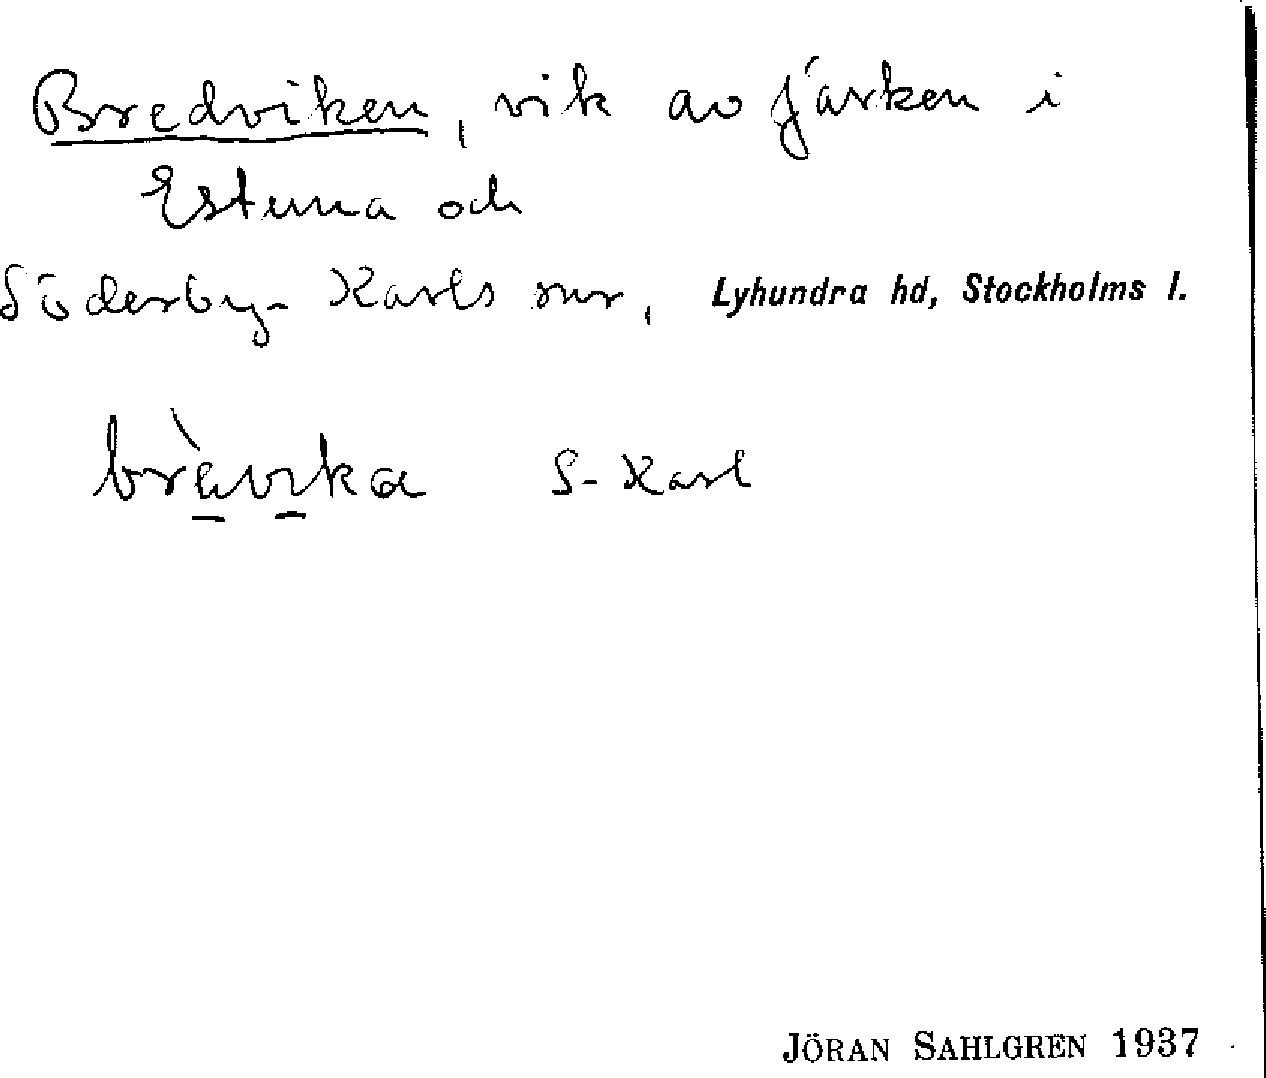 Bredviken, vik av Järken i
Estuna och
Söderby-Karls snr, Lyhundra hd, Stockholms l.
brὲvika S-Karl
JÖRAN SAHLGREN 1937